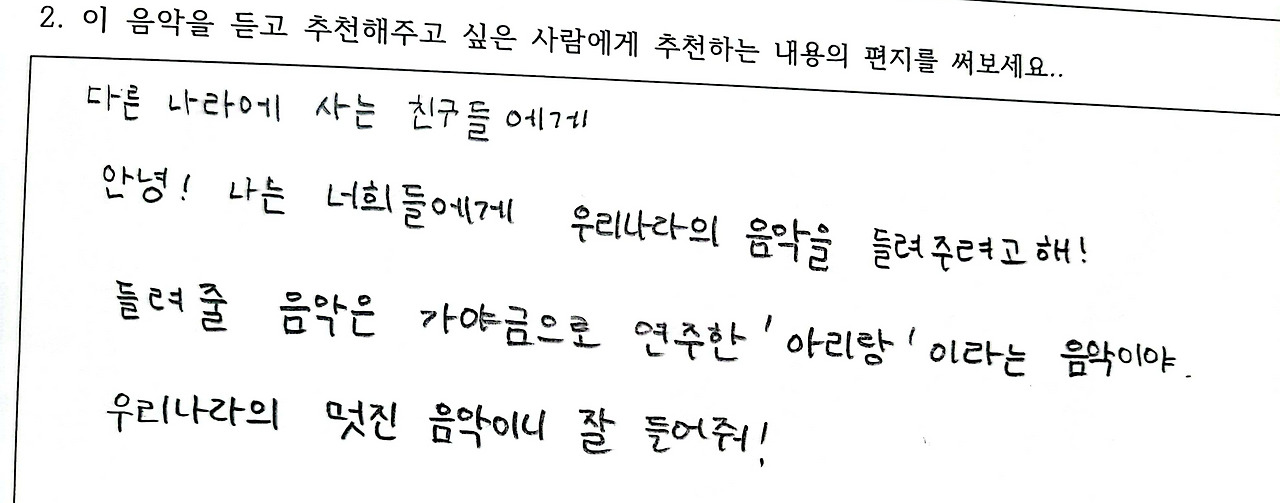 2. 이 음악을 듣고 추천해주고 싶은 사람에게 추천하는 내용의 편지를 써보세요..
다른 나라에 사는 친구들에게
안녕! 나는 너희들에게 우리나라의 음악을 들려주려고 해!
들려줄 음악은 가야금으로 연주한 '아리랑'이라는 음악이야.
우리나라의 멋진 음악이니 잘 들어줘!